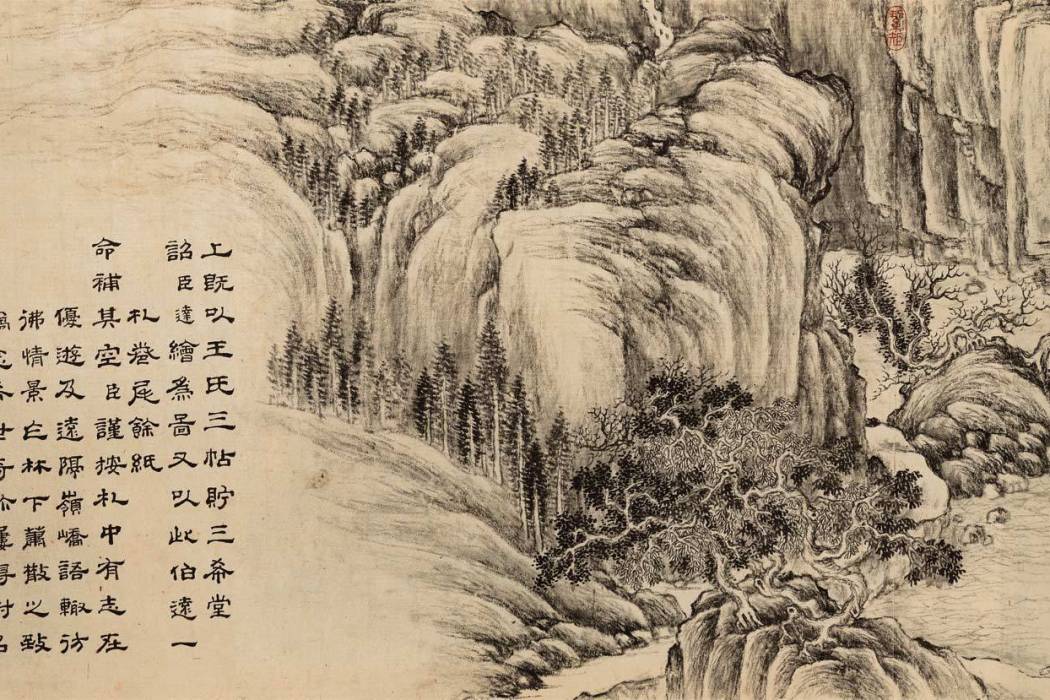 上既以王氏三帖貯三希堂
詔臣達繪為啚又以此伯遠一
札卷尾餘紙
命補其空臣謹按札中有志在
優遊及遠隔嶺嶠語輙彷
彿情景林下蕭散之致